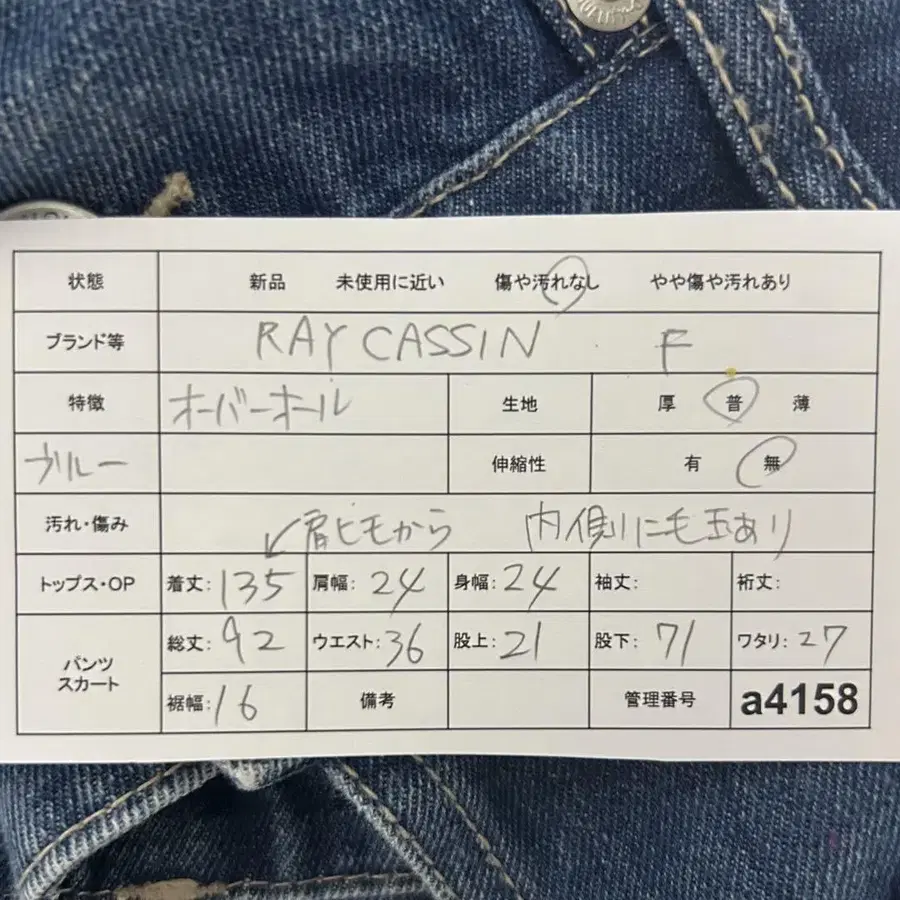 状態 新品 未使用に近い 傷や汚れなし やや傷や汚れあり
ブランド等 RAY CASSIN F
特徴 オーバーオール 生地 厚 普 薄
ブルー 伸縮性 有 無
汚れ・傷み ↙肩ヒモから 内側に毛玉あり
トップス・OP 着丈:135 肩幅:24 身幅:24 袖丈: 裄丈:
パンツ スカート 総丈:92 ウエスト:36 股上:21 股下:71 ワタリ:27
裾幅:16 備考 管理番号 a4158